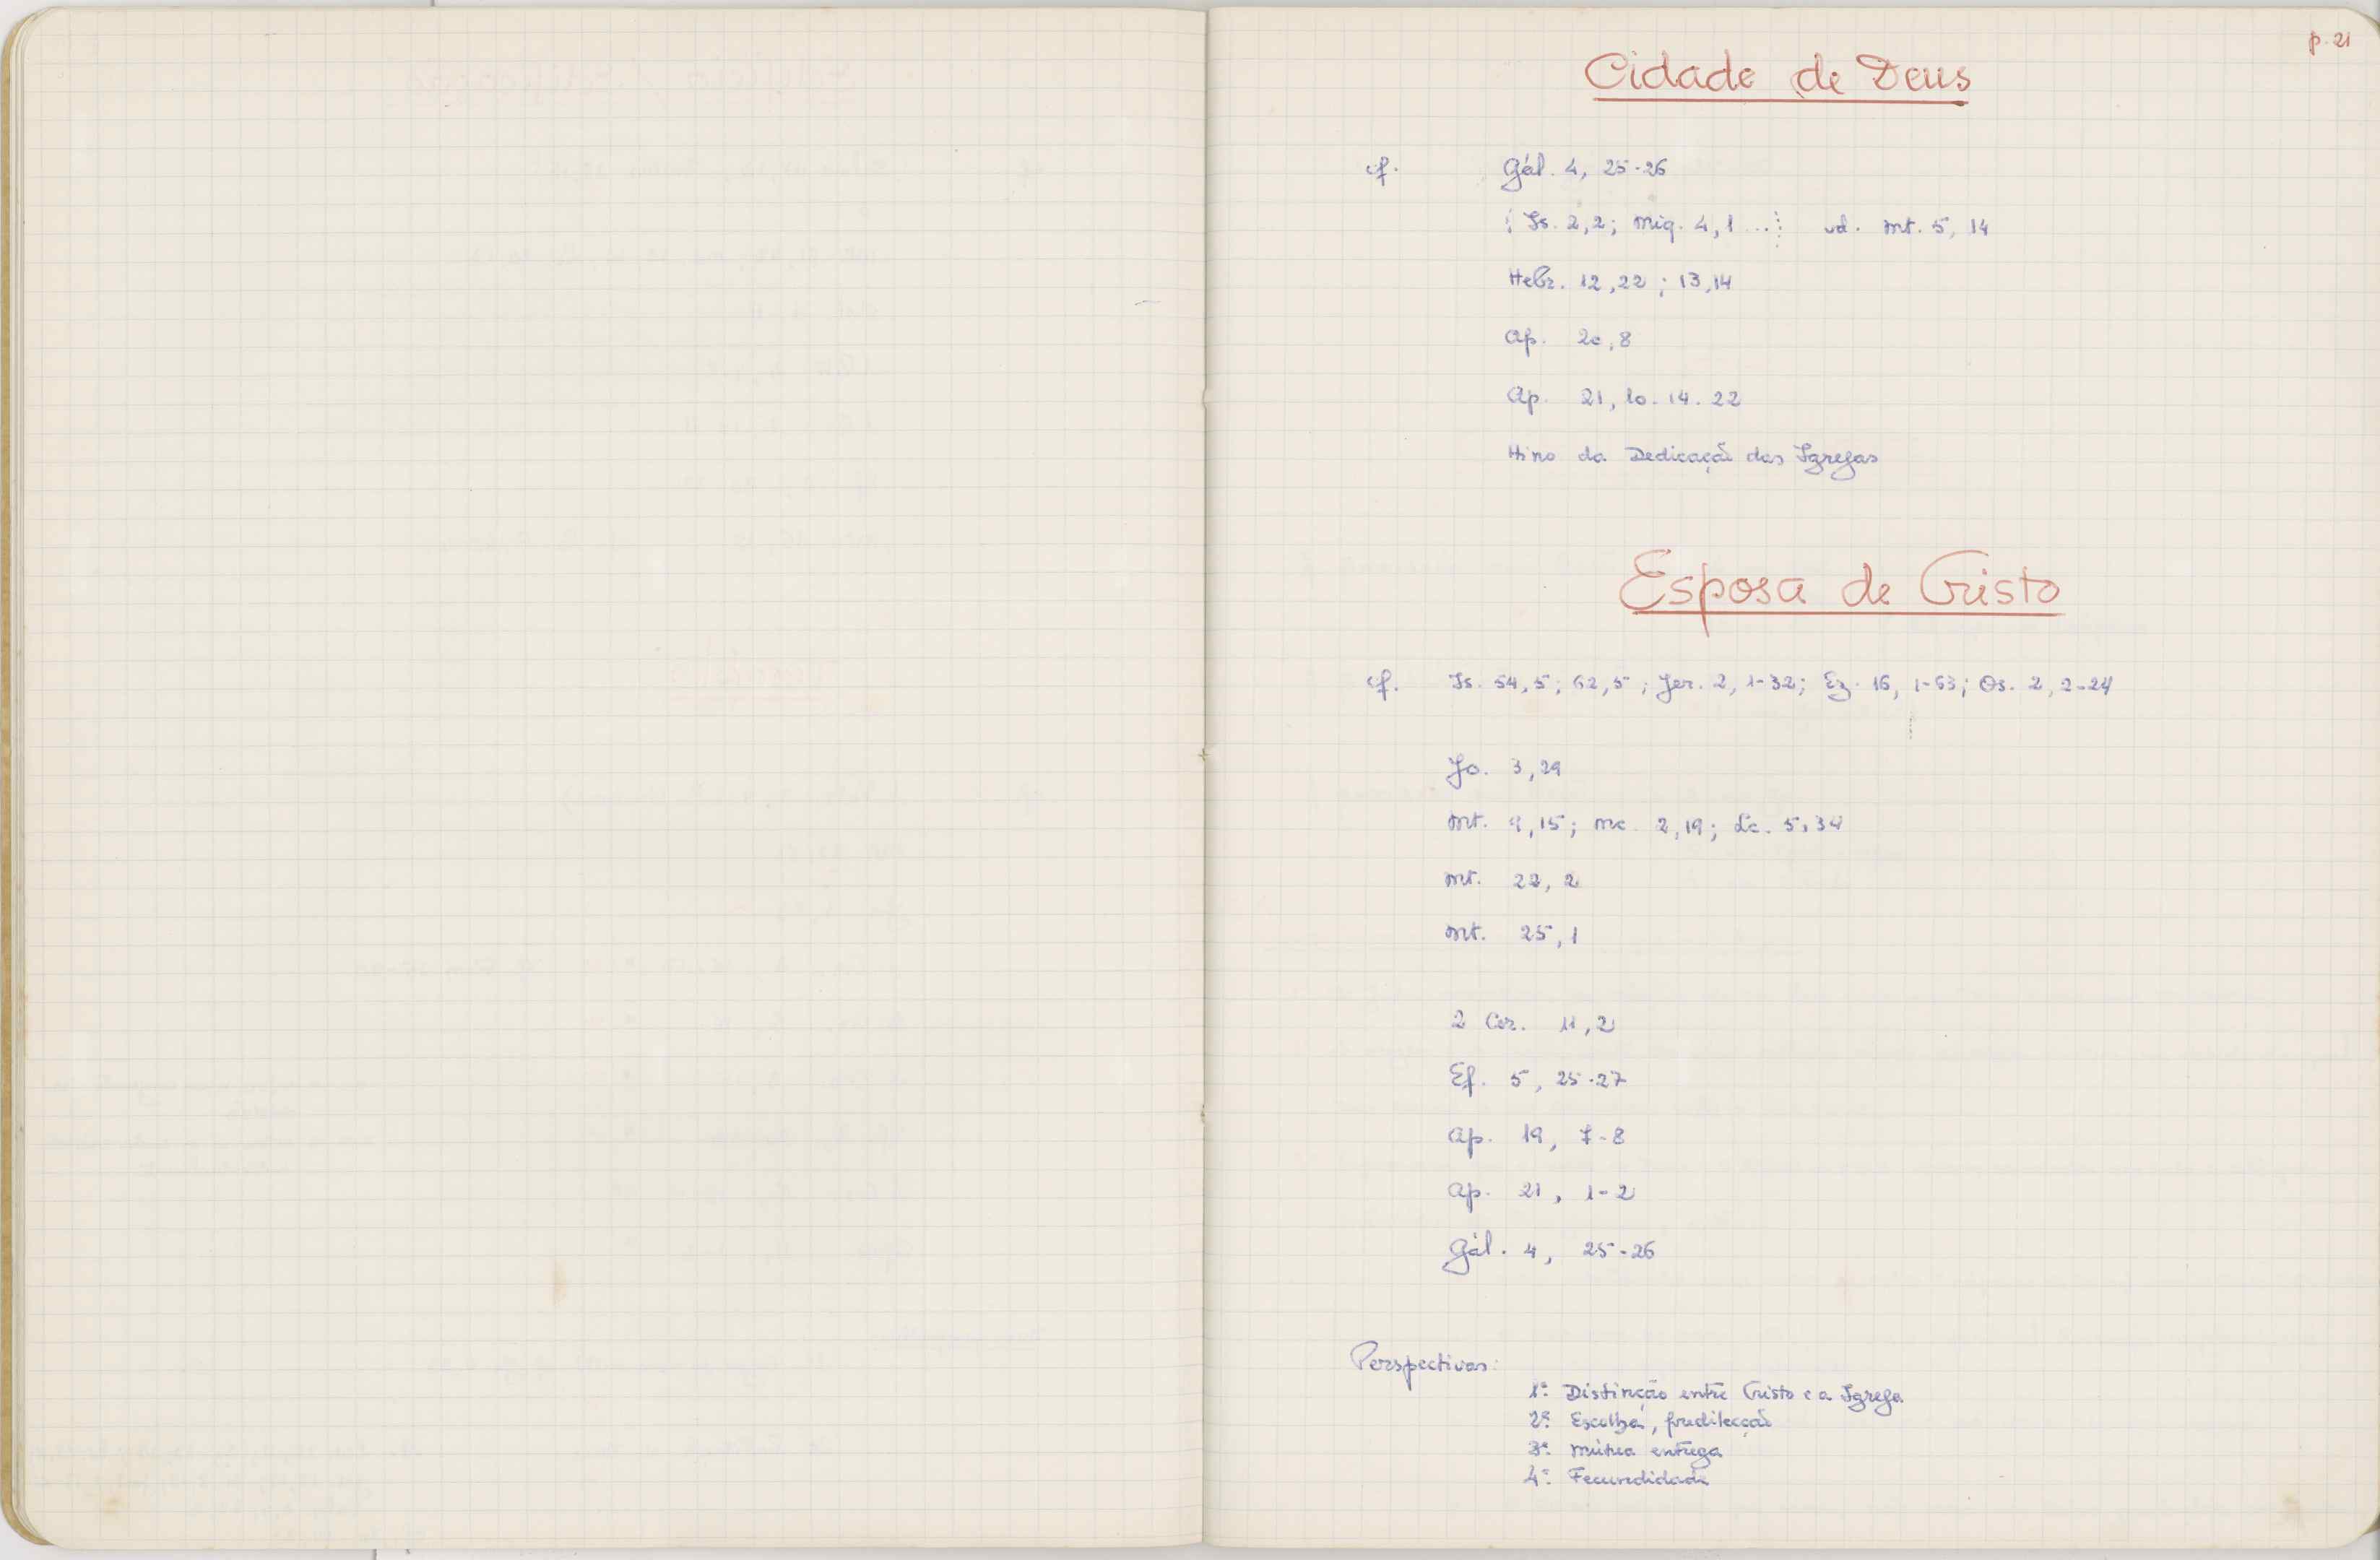 p. 21
Cidade de Deus
cf. Gál. 4, 25-26
Is. 2,2; Miq. 4,1 ... vd. Mt. 5, 14
Hebr. 12,22; 13,14
Ap. 20,8
Ap. 21, 10. 14. 22
Hino da Dedicação das Igrejas
Esposa de Cristo
cf. Is. 54,5; 62,5; Jer. 2, 1-32; Ez. 16, 1-63; Os. 2, 2-24
Jo. 3,29
Mt. 9,15; Mc. 2,19; Lc. 5,34
Mt. 22, 2
Mt. 25,1
2 Cor. 11,2
Ef. 5, 25-27
Ap. 19, 7-8
Ap. 21, 1-2
Gál. 4, 25-26
Perspectivas:
1ª. Distinção entre Cristo e a Igreja
2ª. Escolha, predilecção
3ª. Mútua entrega
4ª. Fecundidade